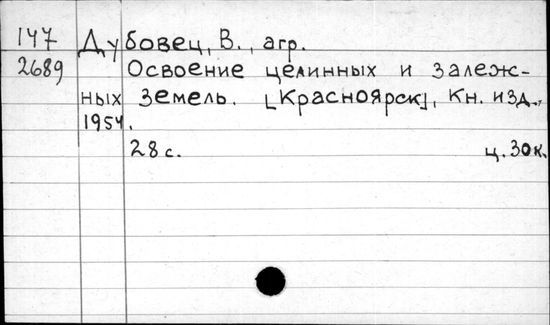 147 Дубовец, В., агр.
2689 Освоение целинных и залеж-
ных земель. [Красноярск], Кн. изд.,
1954.
28 с. ц. 30 к.